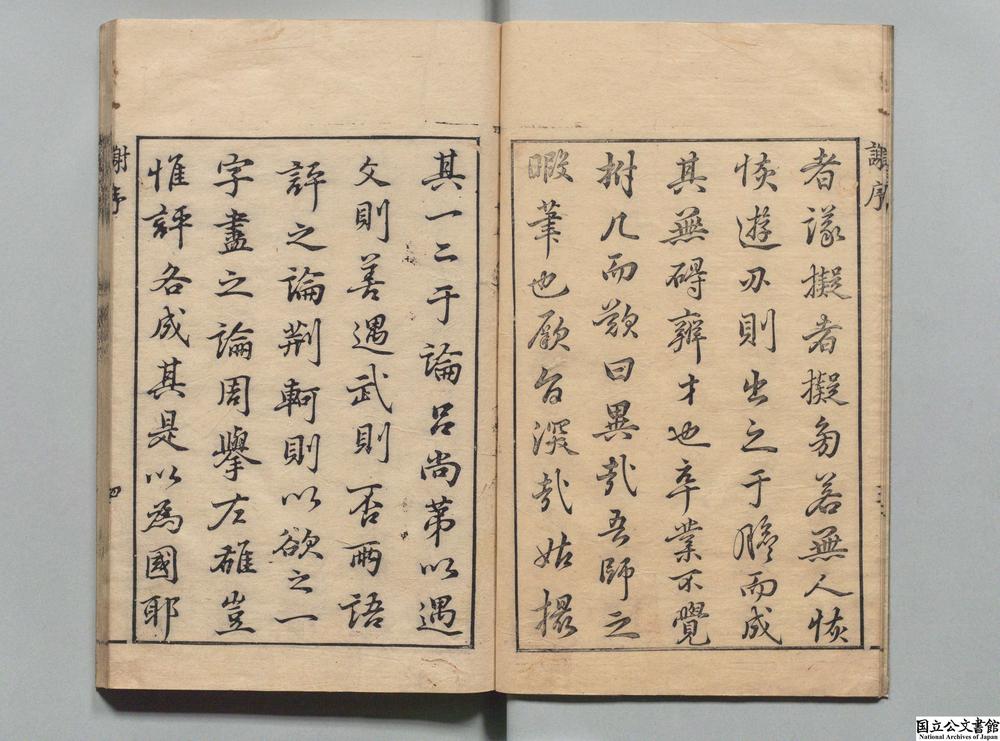 謝序
三
者議擬者擬旁若無人恢
恢遊刃則出之于膽而成
其無碍辨才也卒業不覺
拊几而歎曰異哉吾師之
暇筆也厥旨深哉姑撮
其一二于論呂尚第以遇
文則善遇武則否兩語
評之論荆軻則以欲之一
字盡之論周舉左雄豈
惟評各成其是以為國耶
謝序
四
国立公文書館
National Archives of Japan